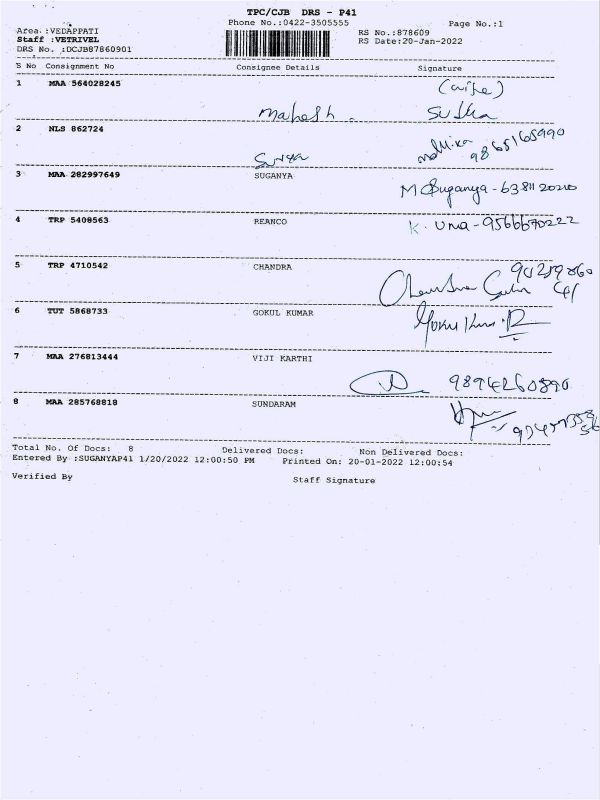 TPC/CJB DRS - P41
Phone No.:0422-3505555 Page No.:1
Area :VEDAPPATI RS No.:878609
Staff :VETRIVEL RS Date:20-Jan-2022
DRS No. :DCJB87860901
S No Consignment No Consignee Details Signature
1 MAA 564028245 (wife)
Mahesh.
2 NLS 862724
Mallika 9865165990
3 MAA 282997649 SUGANYA
M Suganya - 63811 20210
4 TRP 5408563 REANCO K. Uma - 9566670222
5 TRP 4710542 CHANDRA
6 TUT 5868733 GOKUL KUMAR
7 MAA 276813444 VIJI KARTHI
9894260890
8 MAA 285768818 SUNDARAM
Total No. Of Docs: 8 Delivered Docs: Non Delivered Docs:
Entered By :SUGANYAP41 1/20/2022 12:00:50 PM Printed On: 20-01-2022 12:00:54
Verified By Staff Signature